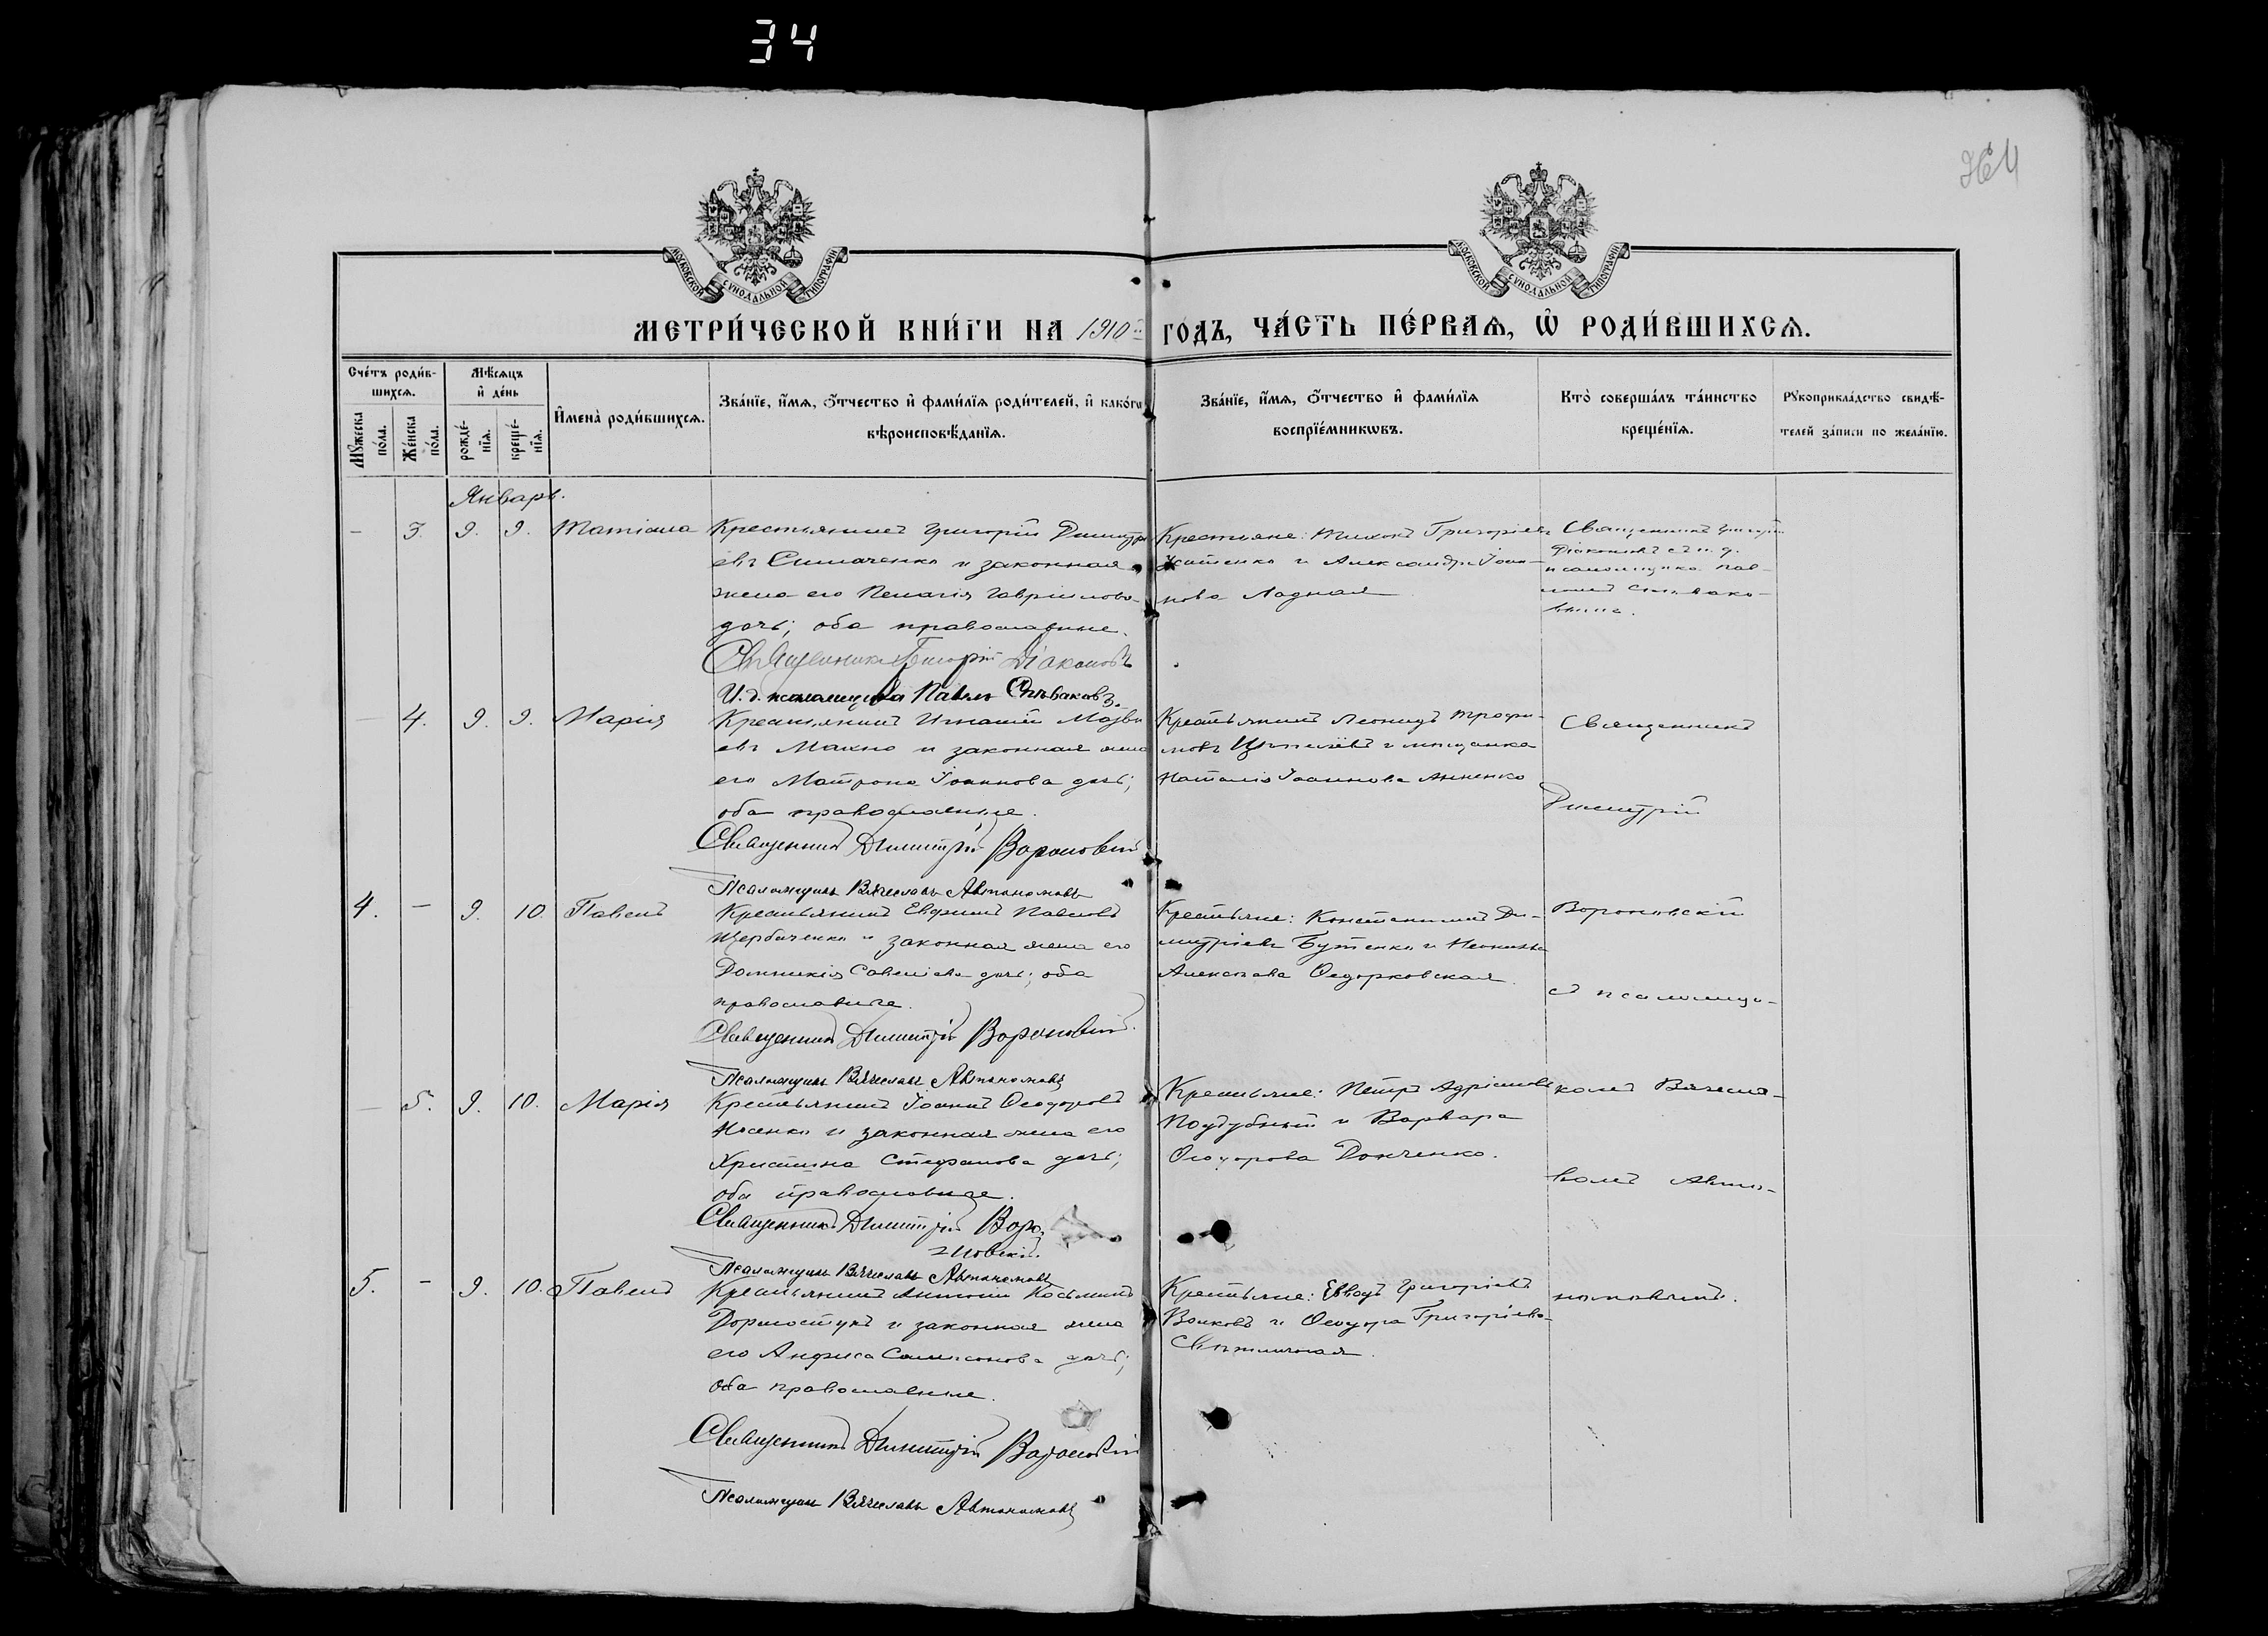 34
364
МОСКОВСКОЙ СѴНОДАЛЬНОЙ ТИПОГРАФІИ
МОСКОВСКОЙ СѴНОДАЛЬНОЙ ТИПОГРАФІИ
МЕТРИ́ЧЕСКОЙ КНИ́ГИ НА 1910й ГОДЪ, ЧА́СТЬ ПЕ́РВАѦ, Ѡ҆ РОДИ́ВШИХСѦ.
Сче́тъ роди́в-
шихсѧ.
Мꙋ́жеска
по́ла.
Же́нска
по́ла.
Мѣ́сѧцъ
и҆ де́нь
рожде́-
нїѧ.
креще́-
нїѧ.
И҆мена̀ роди́вшихсѧ.
Зва́нїе, и҆́мѧ, ѻ҆́тчество и҆ фами́лїѧ роди́телей, и҆ како́гѡ
вѣроисповѣ́данїѧ.
Зва́нїе, и҆́мѧ, ѻ҆́тчество и҆ фами́лїѧ
воспрїе́мникѡвъ.
Кто̀ соверша́лъ та́инство
креще́нїѧ.
Рꙋкоприкла́дство свидѣ́-
телей за́писи по жела́нїю.
Январь.
- 3. 9. 9. Татіана
Крестьянинъ Григорій Димитрі
евъ Симаченко и законная
жена его Пелагія Гавріилова
дочь; оба православные.
Священникъ Григорій Діаконовъ
И. д. псаломщика Павелъ Спѣваковъ
Крестьяне: Тихонъ Григоріевъ
и Александра Іоан-
нова Ладная
Священникъ Григорій
Діаконовъ съ и. д.
псаломщика Пав-
ломъ Спѣвако-
вымъ.
- 4. 9. 9. Марія
Крестьянинъ Игнатій Матѳі
евъ Махно и законная жена
его Матрона Іоаннова дочь;
оба православные.
Священникъ Димитрій Вороновскій
Псаломщикъ Вячеславъ Автономовъ
Крестьянинъ Леонидъ Трофи-
мовъ и мѣщанка
Наталія Іоаннова Анненко
Священникъ
Димитрій
4. - 9. 10. Павелъ
Крестьянинъ Евфимъ Павловъ
Щербаченко и законная жена его
Домникія Савеліева дочь; оба
православные.
Священникъ Димитрій Вороновскій
Псаломщикъ Вячеславъ Автономовъ
Крестьяне: Константинъ Ди-
митріевъ Бутенко и
Алексѣева Ѳедорковская.
Вороновскій
съ псаломщи-
- 5. 9. 10. Марія
Крестьянинъ Іоаннъ Ѳеодоровъ
Носенко и законная жена его
Христина Стефанова дочь;
оба православные.
Священникъ Димитрій Воро-
новскій.
Псаломщикъ Вячеславъ Автономовъ
Крестьяне: Петръ Адріановъ
Поддубный и Варвара
Ѳеодорова Донченко.
комъ Вячесла-
вомъ Авто-
5. - 9. 10. Павелъ
Крестьянинъ Антоній Косьминъ
Дормостукъ и законная жена
его Анфиса Самсонова дочь;
оба православные.
Священникъ Димитрій Вороновскій
Псаломщикъ Вячеславъ Автономовъ
Крестьяне: Евводъ Григоріевъ
Волковъ и Ѳеодора Григоріева
номовымъ.